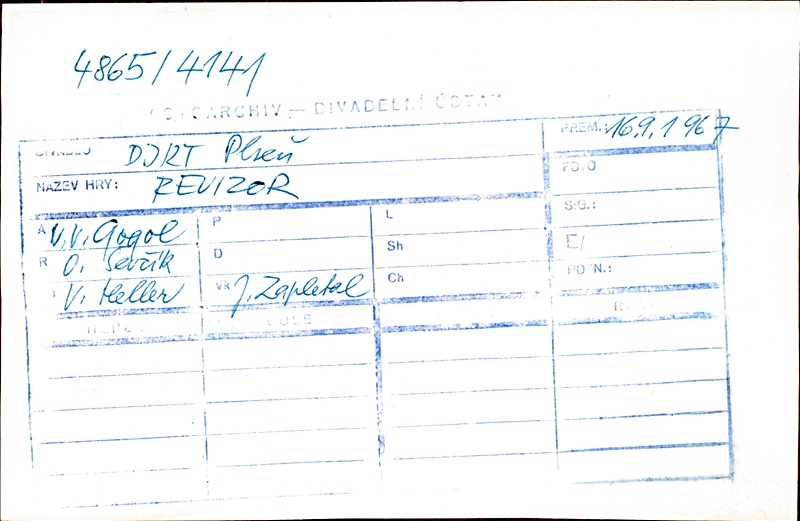 4865/4141
FOTOARCHIV – DIVADELNÍ ÚSTAV
DIVADLO DJKT Plzeň
PREM.: 16.9.1967
NÁZEV HRY: REVIZOR
FOTO
SIG.:
E/
POZN.:
A V.V. Gogol
R O. Ševčík
V. Heller
P
D
Vk J. Zapletal
L
Sh
Ch
ROLE